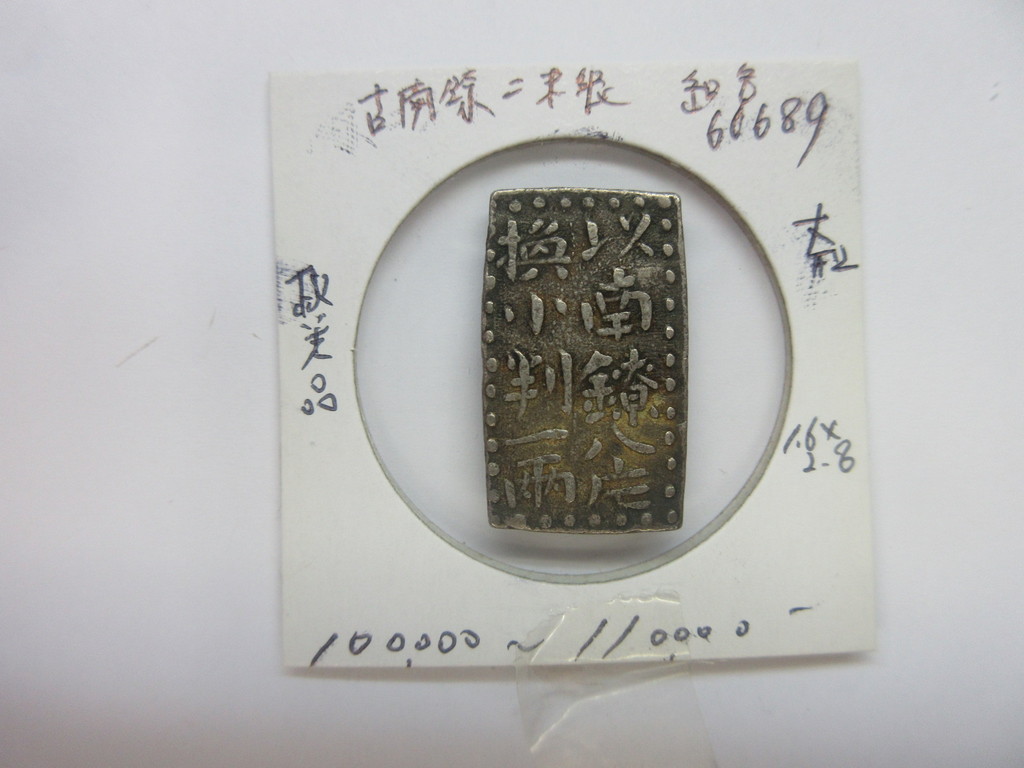 古南鐐二朱銀
60689
大型
極美品
以南鐐八片
換小判一両
1.6×
2.8
100,000～110,000-